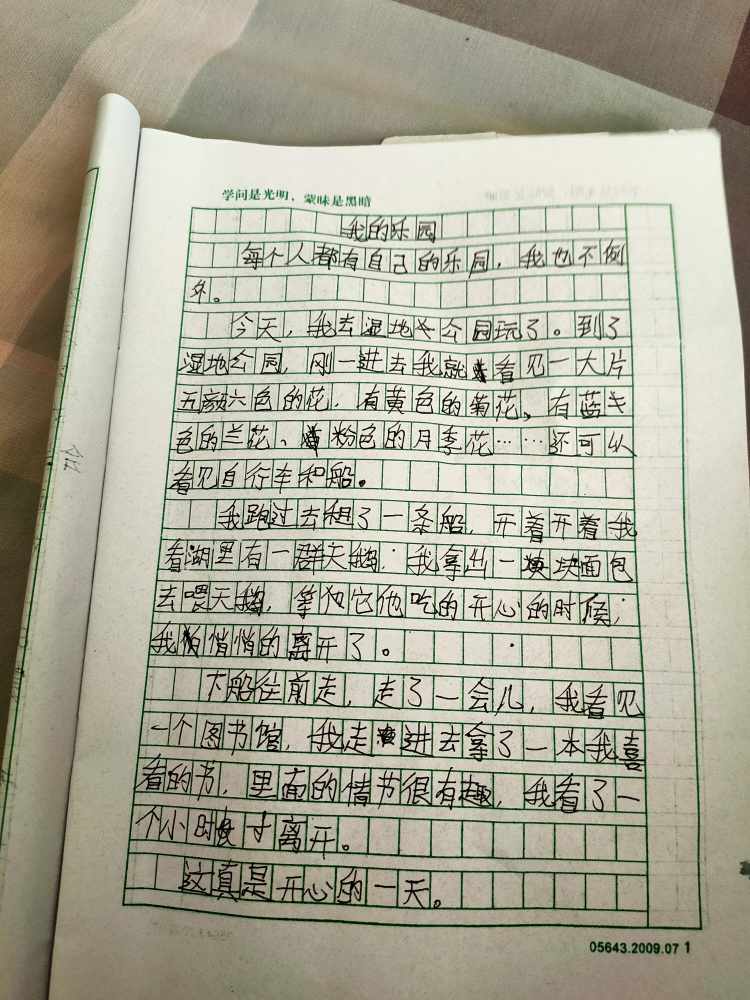 学问是光明，蒙昧是黑暗
我的乐园
每个人都有自己的乐园，我也不例
外。
今天，我去湿地公园玩了。到了
湿地公园，刚一进去我就看见一大片
五颜六色的花，有黄色的菊花、有蓝
色的兰花、粉色的月季花……还可以
看见自行车和船。
我跑过去租了一条船，开着开着我
看湖里有一群天鹅，我拿出一块面包
去喂天鹅，等它他吃的开心的时候，
我悄悄的离开了。
下船往前走，走了一会儿，我看见
一个图书馆，我走进去拿了一本我喜
看的书，里面的情节很有趣，我看了一
个小时才离开。
这真是开心的一天。
05643.2009.07 1